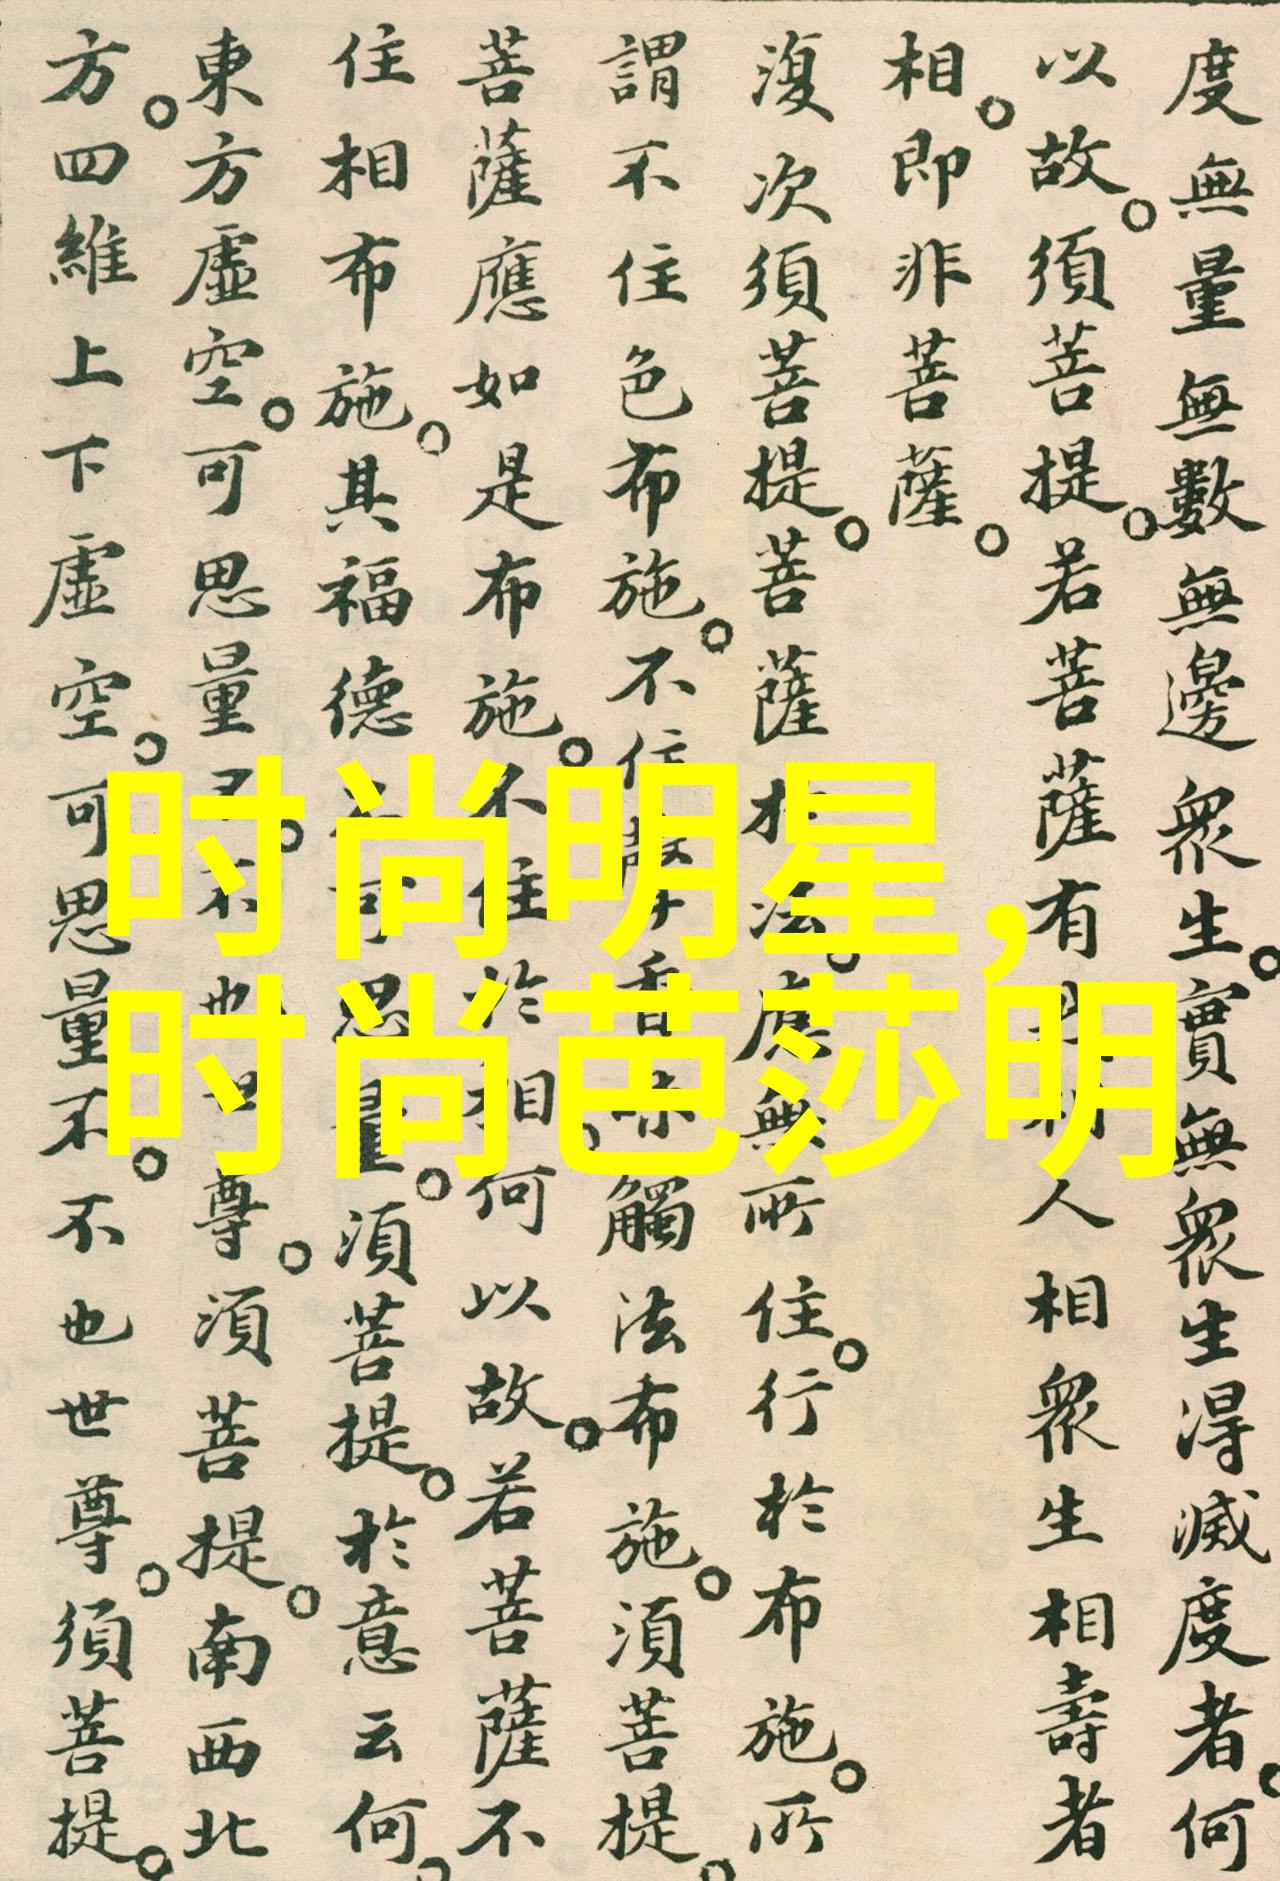 度無量無數無邊眾生實無眾生得滅度者何
以故須菩提若菩薩有人相眾生相壽者
相即非菩薩
復次須菩提菩薩於法應無所住行於布施所
謂不住色布施不住聲香味觸法布施須菩提
菩薩應如是布施不住於相何以故若菩薩不
住相布施其福德不可思量須菩提於意云何
東方虛空可思量不不也世尊須菩提南西北
方四維上下虛空可思量不不也世尊須菩提
时尚明星,
时尚芭莎明